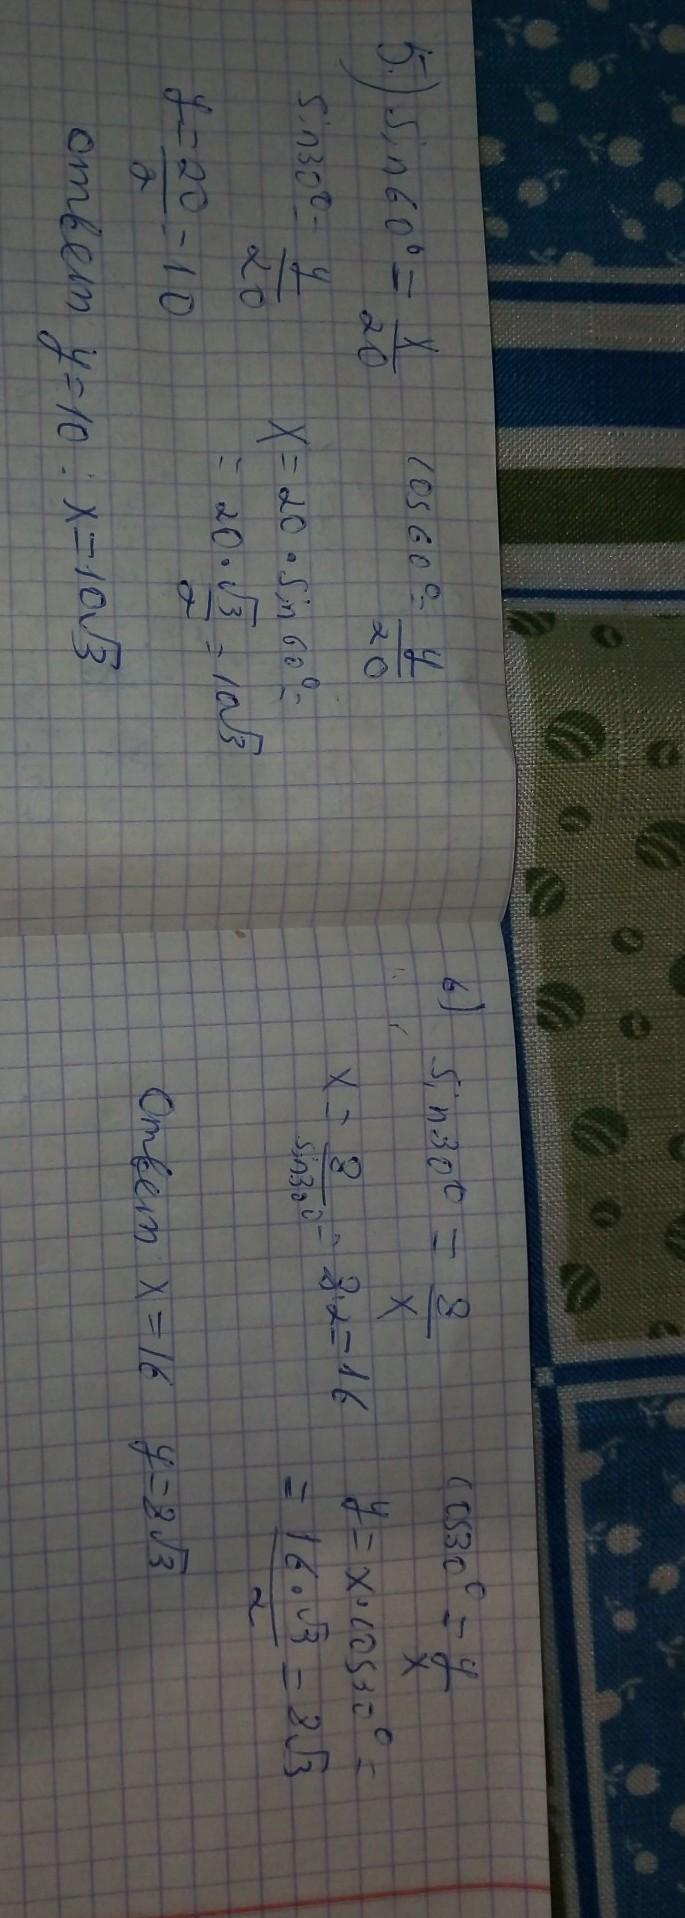 5.) sin60° = x/20
cos60° = y/20
sin30° = y/20
x = 20 · sin60° =
= 20 · √3/2 = 10√3
y = 20/2 = 10
ответ y = 10 : x = 10√3
6) sin30° = 8/x
cos30° = y/x
x = 8/sin30° = 8·2 = 16
y = x · cos30° =
= 16 · √3/2 = 8√3
Ответ x = 16 y = 8√3